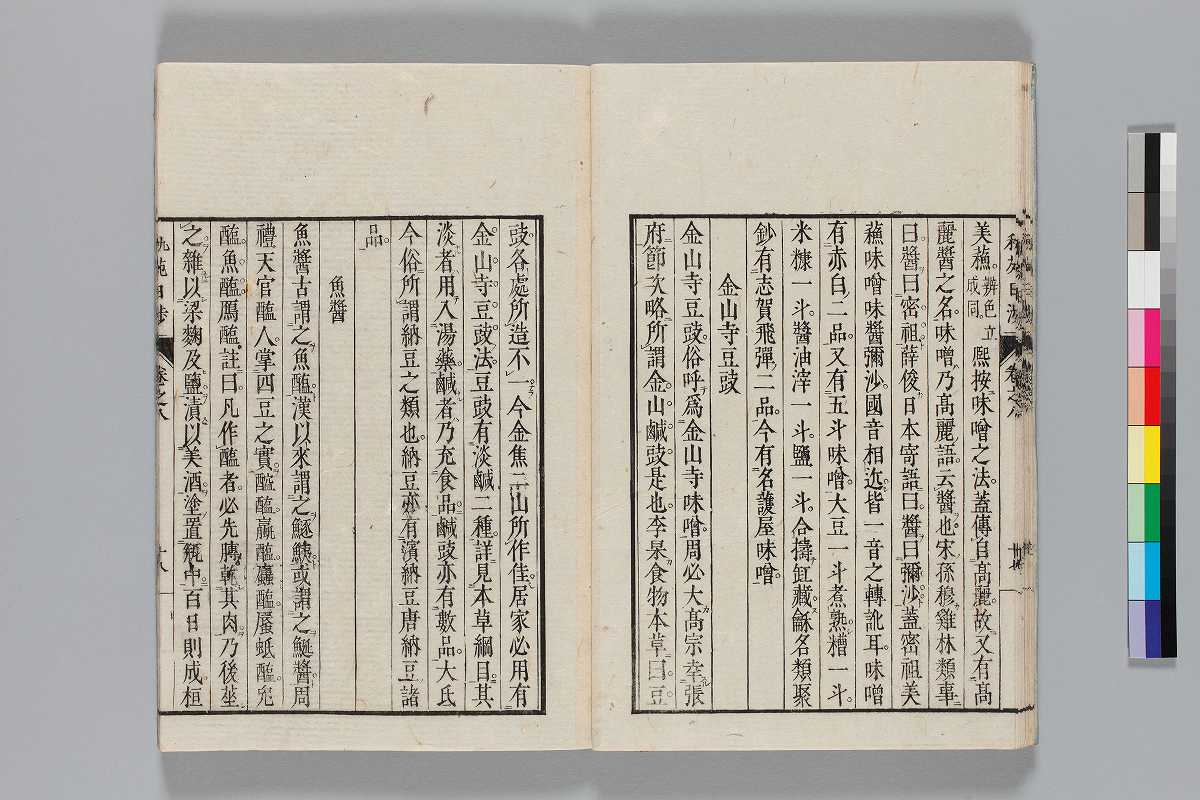 美蘓辨色立成同。熙按味噌之法蓋傳自高麗故又有高
麗醬之名。味噌乃高麗語云醬也宋孫穆雞林類事
曰醬曰密祖。薛俊日本寄語曰醬曰彌沙。蓋密祖美
蘓味噌味醬彌沙。國音相近皆一音之轉訛耳。味噌
有赤白二品。又有五斗味噌。大豆一斗煮熟糟一斗。
米糠一斗。醬油滓一斗。鹽一斗。合擣缸藏龢名類聚
鈔有志賀飛彈二品。今有名護屋味噌。
金山寺豆豉
金山寺豆豉。俗呼爲金山寺味噌。周必大高宗幸張
府節次略所謂金山鹹豉是也。李杲食物本草曰。豆
豉。各處所造不一。今金焦二山所作佳。居家必用有
金山寺豆豉法。豆豉有淡鹹二種。詳見本草綱目。其
淡者用入湯藥。鹹者乃充食品。鹹豉亦有數品。大氐
今俗所謂納豆之類也。納豆亦有濱納豆唐納豆諸
品。
魚醬
魚醬古謂之魚醢。漢以來謂之鱁鮧。或謂之鯅醬。周
禮天官醢人掌四豆之實。醓醢蠃醢蠯醢蜃蚳醢。兔
醢。魚醢。鴈醢。註曰。凡作醢者。必先膊乾其肉。乃後莝
之。雜以梁麴及鹽。漬以美酒。塗置甀中。百日則成。桓
卷之八
十八